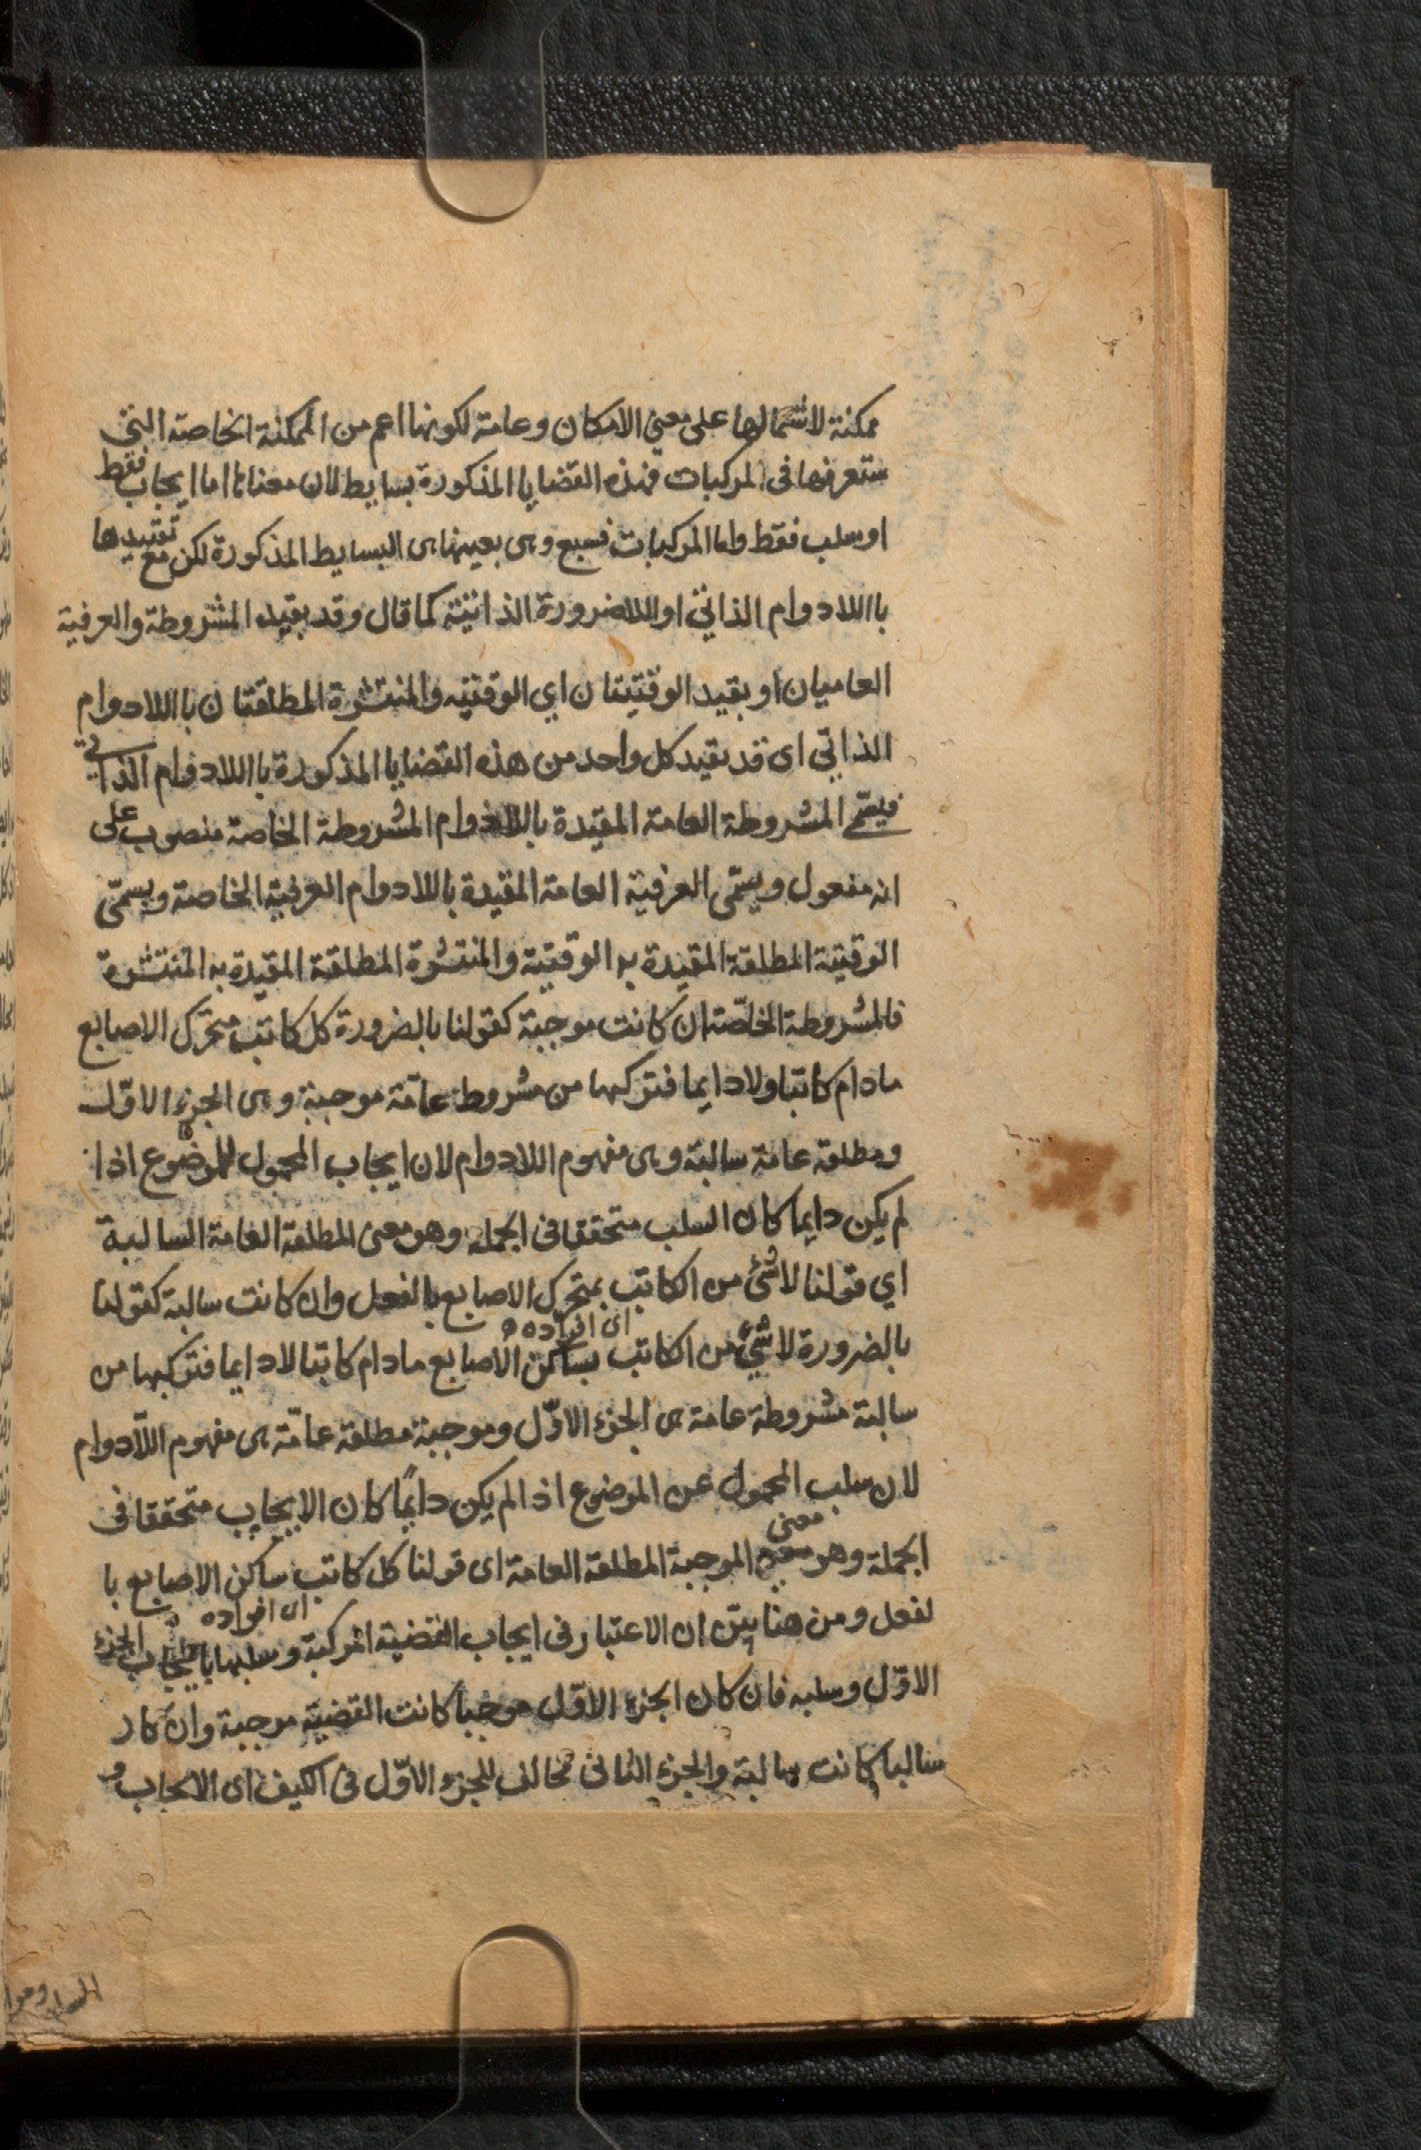 ممكنة لاشتمالها على معنى الامكان وعامة لكونها اعم من الممكنة الخاصة التي
ستعرفها فى المركبات فهذه القضايا المذكورة بسايط لان معناها اما ايجاب فقط
او سلب فقط واما المركبات فسبع وهى بعينها هى البسايط المذكورة لكن مع تقييدها
باللادوام الذاتي او اللاضرورة الذاتية كما قال وقد بقيد المشروطة والعرفية
العاميان او بقيد الوقتيتان اي الوقتيه والمنتشرة المطلقتان باللادوام
الذاتي اى قد بقيد كل واحد من هذه القضايا المذكورة باللادوام الذاتي
فيسمى المشروطة العامة المقيدة باللادوام المشروطة الخاصة منصوب على
انه مفعول ويسمّى العرفية العامة المقيدة باللادوام العرفية الخاصة ويسمّى
الوقتية المطلقة المقيدة به الوقتية والمنتشرة المطلقة المقيدة به المنتشرة
فالمشروطة الخاصّة ان كانت موجبة كقولنا بالضرورة كل كاتب متحرك الاصابع
مادام كاتبا ولادايما فتركبها من مشروطة عامّة موجبة وهى الجزء الاوّل
ومطلقة عامة سالبة وهى مفهوم اللادوام لان ايجاب المحمول للموضوع اذا
لم يكن دايما كان السلب متحققا فى الجملة وهو معنى المطلقة العامة السالبة
اي قولنا لاشئ من الكاتب بمتحرك الاصابع بالفعل وان كانت سالبة كقولنا
اى افراده
بالضرورة لاشئ من الكاتب بساكن الاصابع مادام كاتبا لادايما فتركبها من
سالبة مشروطة عامة هى الجزء الاوّل وموجبة مطلقة عامّة هى مفهوم اللّادوام
لان سلب المحمول عن الموضوع اذا لم يكن دايمًا كان الايجاب متحققا فى
معنى
الجملة وهو الموجبة المطلقة العامة اى قولنا كل كاتب ساكن الاصابع با
اى افراده
لفعل ومن هنا بيّن ان الاعتبار فى ايجاب القضية المركبة وسلبها بايجاب الجزء
الاوّل وسلبه فان كان الجزء الاوّل موجبا كانت القضية موجبة وان كان
سالبا كانت سالبة والجزء الثانى مخالف للجزء الاوّل فى الكيف اى الايجاب و